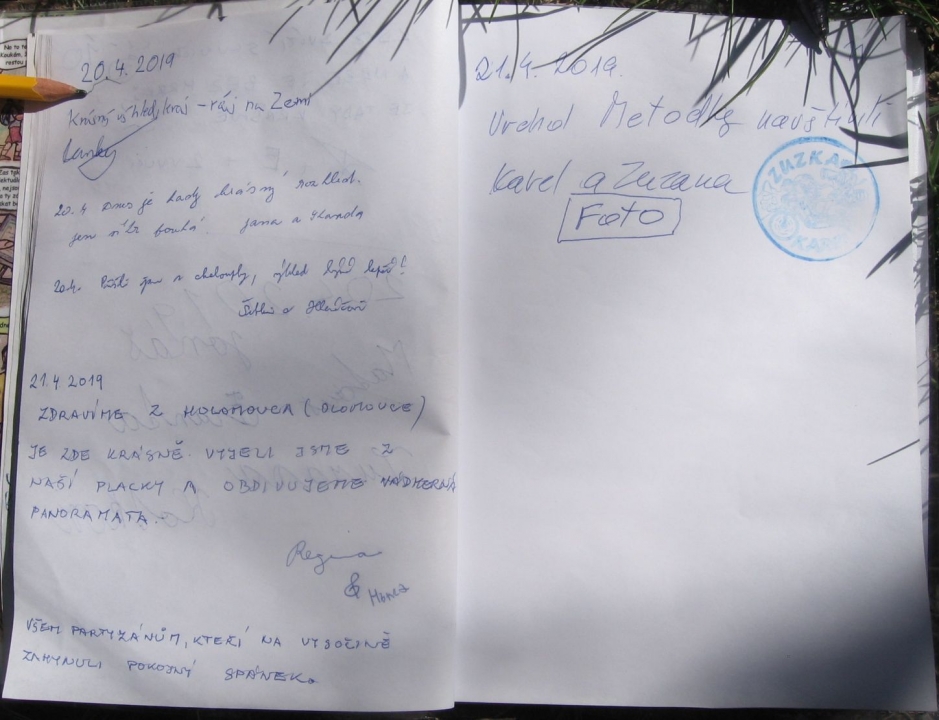 20.4. 2019
Krásný výhled, kraj - ráj na Zemi
Lenky
20.4 Dnes je tady krásný rozhled.
jen vítr fouká. Jana a
20.4. z chaloupky, výhled byl lepší!
a
21.4 2019
ZDRAVÍME Z HOLOMOUCA (OLOMOUCE)
JE ZDE KRÁSNĚ. VYJELI JSME Z
NAŠÍ PLACKY A OBDIVUJEME NÁDHERNÁ
PANORÁMATA.
Regina
& Honza
VŠEM PARTYZÁNŮM, KTEŘÍ NA VYSOČINĚ
ZAHYNULI POKOJNÝ SPÁNEK.
21.4. 2019.
Vrchol Metodky navštívili
Karel a Zuzana
FOTO
ZUZKA
KAREL